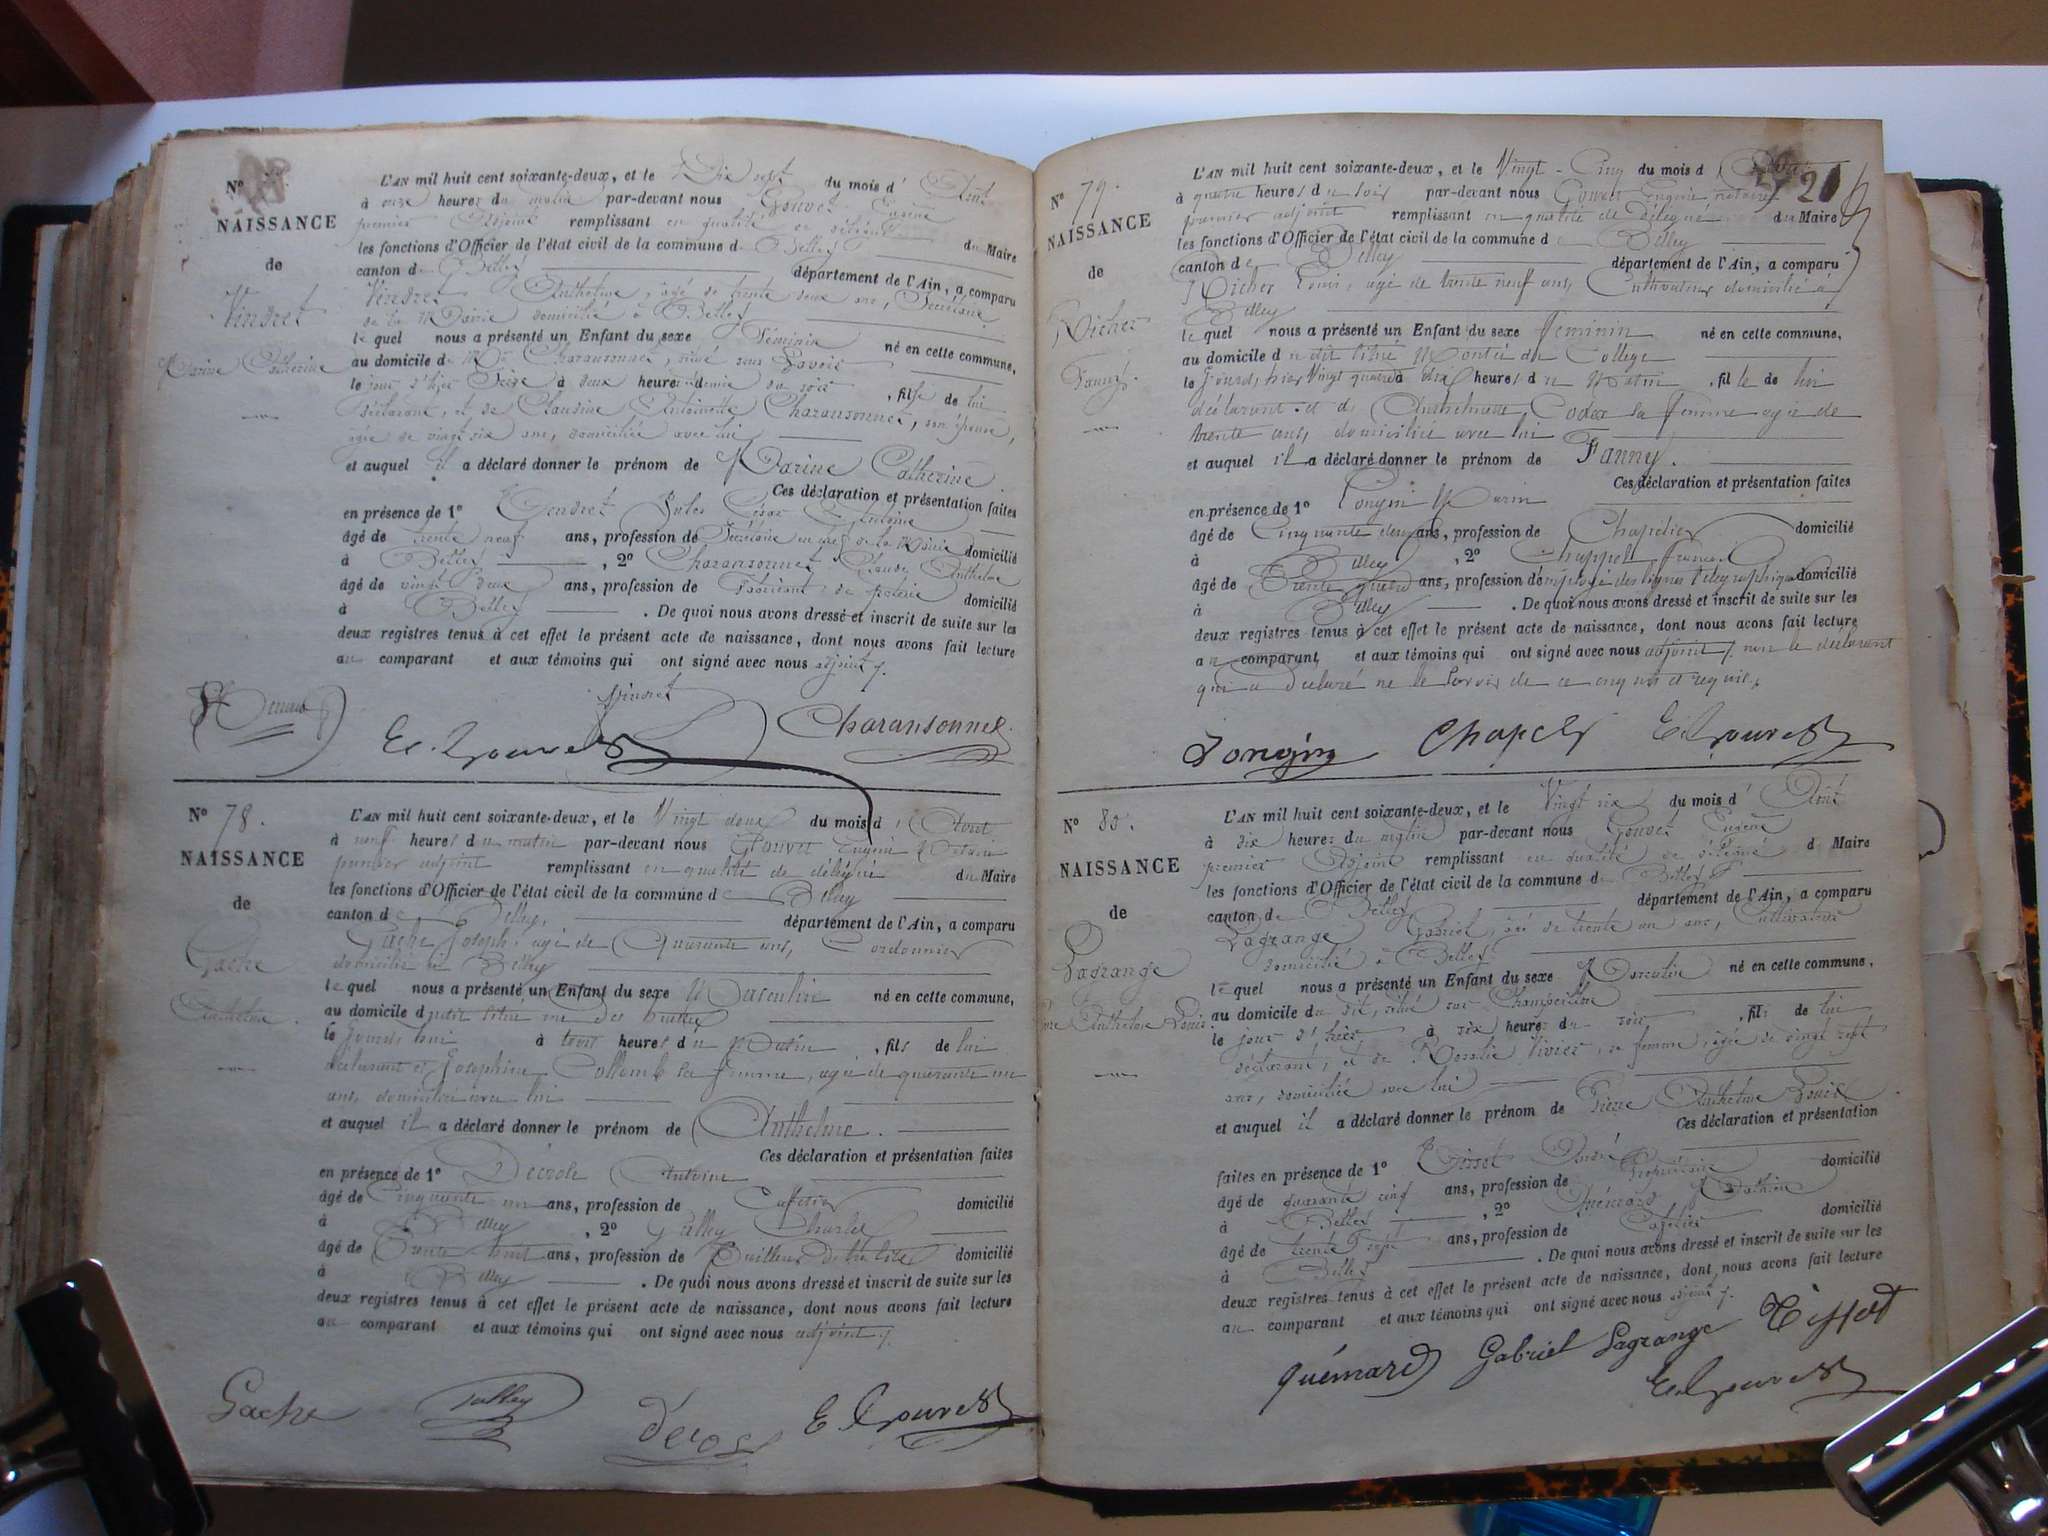 N°
NAISSANCE
de
Vindret
Marine Catherine
L'AN mil huit cent soixante-deux, et le Dix sept du mois d' Août
à onze heures du matin par-devant nous Gouvet Eugène
premier Adjoint remplissant en qualité de délégué du Maire
les fonctions d'Officier de l'état civil de la commune de Belley
canton de Belley département de l'Ain, a comparu
Vindret Anthelme, âgé de trente deux ans, Secrétaire
de la Mairie domicilié à Belley
lequel nous a présenté un Enfant du sexe Féminin né en cette commune,
au domicile de Mr Charansonnet, situé sous Savoie
le jour d'hier Seize à deux heures demie du soir, fille de lui
déclarant, et de Claudine Antoinette Charansonnet, son épouse,
âgée de vingt six ans, domiciliée avec lui
et auquel il a déclaré donner le prénom de Marine Catherine
Ces déclaration et présentation faites
en présence de 1° Jules César Antoine
âgé de trente neuf ans, profession de Secrétaire en chef de la Mairie domicilié
à Belley, 2° Charansonnet Claude Anthelme
âgé de vingt deux ans, profession de Fabricant de poterie domicilié
à Belley. De quoi nous avons dressé et inscrit de suite sur les
deux registres tenus à cet effet le présent acte de naissance, dont nous avons fait lecture
au comparant et aux témoins qui ont signé avec nous adjoint
Vindret
E. Gouvet
Charansonnet
N° 78.
NAISSANCE
de
Gache
Anthelme.
L'AN mil huit cent soixante-deux, et le Vingt deux du mois d' Aout
à neuf heures du matin par-devant nous Gouvet Eugène Notaire
premier adjoint remplissant en qualité de délégué du Maire
les fonctions d'Officier de l'état civil de la commune de Belley
canton de Belley, département de l'Ain, a comparu
Gache Joseph, agé de Quarante ans, Cordonnier
domicilié à Belley
lequel nous a présenté un Enfant du sexe Masculin né en cette commune,
au domicile du petit situé rue des
le Jourdhui à trois heures du Matin, fils de lui
déclarant et Josephine Collomb sa femme, agée de quarante un
ans, domiciliée avec lui
et auquel il a déclaré donner le prénom de Anthelme.
Ces déclaration et présentation faites
en présence de 1° Décrole Antoine
âgé de Cinquante un ans, profession de Caffetier domicilié
à Belley, 2° Talley Charles
âgé de Trente huit ans, profession de Tailleur d'habits domicilié
à Belley. De quoi nous avons dressé et inscrit de suite sur les
deux registres tenus à cet effet le présent acte de naissance, dont nous avons fait lecture
au comparant et aux témoins qui ont signé avec nous adjoint
Gache Talley E Gouvet
N° 79.
NAISSANCE
de
Richer
Fanny.
L'AN mil huit cent soixante-deux, et le Vingt-Cinq du mois d' 
à quatre heures du soir par-devant nous Gouvet Eugène notaire 21
premier adjoint remplissant en qualité de Délégué du Maire
les fonctions d'Officier de l'état civil de la commune de Belley
canton de Belley département de l'Ain, a comparu
Richer Louis, agé de trente neuf ans, Cultivateur domicilié à
Belley
lequel nous a présenté un Enfant du sexe Féminin né en cette commune,
au domicile du dit situé Montée du College
le Jourd'hier Vingt quatre à dix heures du Matin, fille de lui
déclarant et d' Anthelmette Codex sa femme agée de
trente ans, domicilié avec lui
et auquel il a déclaré donner le prénom de Fanny.
Ces déclaration et présentation faites
en présence de 1° Longin Marin
âgé de Cinquante deux ans, profession de Chapelier domicilié
à Belley, 2° Chappell
âgé de Trente quatre ans, profession d'employé des lignes télégraphiques domicilié
à Belley. De quoi nous avons dressé et inscrit de suite sur les
deux registres tenus à cet effet le présent acte de naissance, dont nous avons fait lecture
au comparant et aux témoins qui ont signé avec nous adjoint non le déclarant
qui a declaré ne le savoir de ce enquis et requis.
Longin E. Gouvet
N° 80.
NAISSANCE
de
Lagrange
Anthelme Louis
L'AN mil huit cent soixante-deux, et le Vingt six du mois d' Août
à dix heures du matin par-devant nous Gouvet Eugène
premier Adjoint remplissant en qualité de délégué du Maire
les fonctions d'Officier de l'état civil de la commune de Belley
canton de Belley département de l'Ain, a comparu
Lagrange Gabriel, âgé de trente un ans, Cultivateur
domicilié à Belley
lequel nous a présenté un Enfant du sexe Masculin né en cette commune,
au domicile du dit, situé sur
le jour d'hier, à six heures du soir, fils de lui
déclarant, et de Rosalie Vivier, sa femme, âgée de vingt sept
ans, domiciliée avec lui
et auquel il a déclaré donner le prénom de Pierre Anthelme Louis
Ces déclaration et présentation
faites en présence de 1° Tissot
âgé de quarante cinq ans, profession de Propriétaire domicilié
à Belley, 2° Quémard Mathieu
âgé de trente sept ans, profession de Cafetier domicilié
à Belley. De quoi nous avons dressé et inscrit de suite sur les
deux registres tenus à cet effet le présent acte de naissance, dont nous avons fait lecture
au comparant et aux témoins qui ont signé avec nous adjoint
quémard Gabriel Lagrange Tissot
E. Gouvet